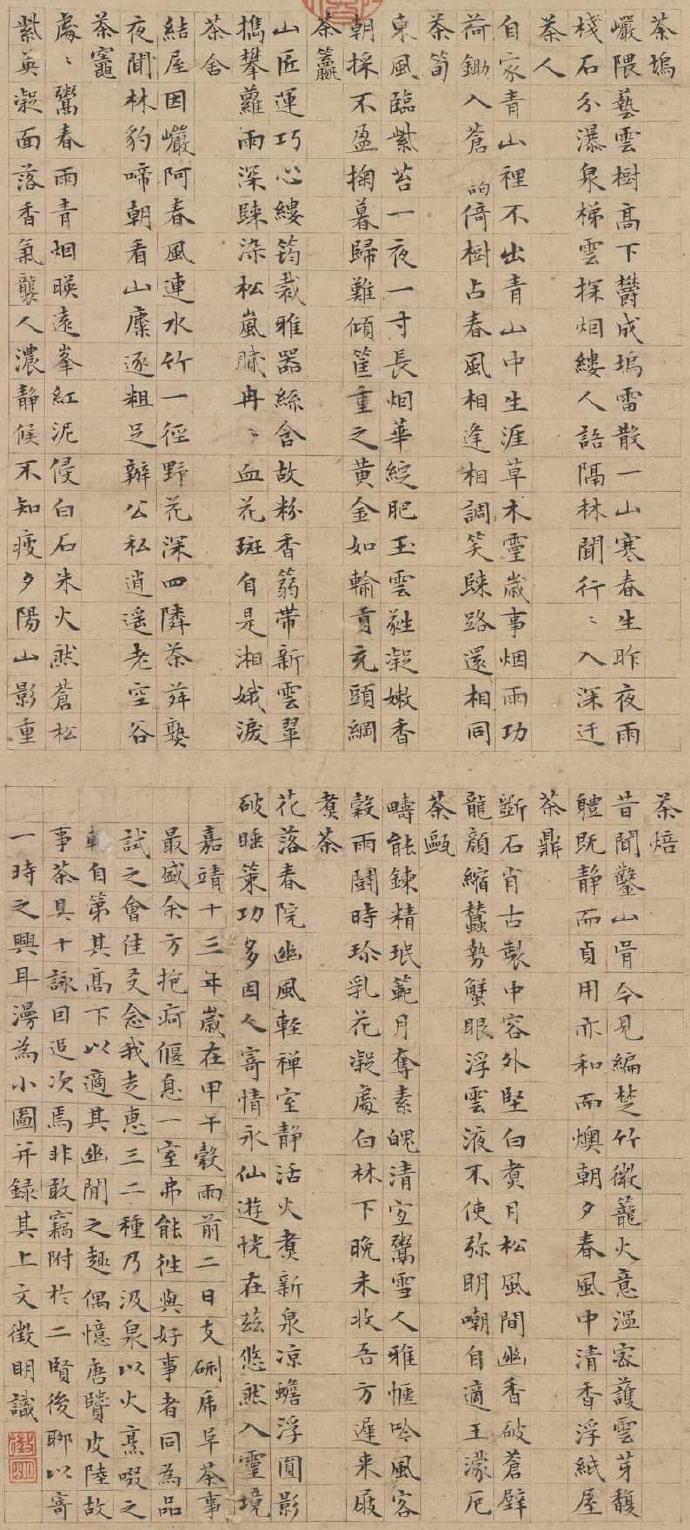 茶塢
巖隈藝雲樹高下鬱成塢雷散一山寒春生昨夜雨
棧石分瀑泉梯雲探烟縷人語隔林聞行〻入深迂
茶人
自家青山裡不出青山中生涯草木靈歲事烟雨功
荷鋤入蒼倚樹占春風相逢相調笑歸路還相同
茶筍
東風臨紫苔一夜一寸長烟華綻肥玉雲蕤凝嫩香
朝採不盈掬暮歸難傾筐重之黃金如輸貢充頭綱
茶籯
山匠運巧心縷筠裁雅器絲含故粉香箬帶新雲翠
攜攀蘿雨深歸染松嵐膩冉〻血花斑自是湘娥淚
茶舍
結屋因巖阿春風連水竹一徑野花深四鄰茶荈熟
夜聞林豹啼朝看山麋逐粗足辦公私逍遙老空谷
茶竈
處〻鬻春雨青烟映遠峯紅泥侵白石朱火然蒼松
紫英凝面落香氣襲人濃靜候不知疲夕陽山影重
茶焙
昔聞鑿山骨今見編楚竹微籠火意溫密護雲芽馥
體既靜而貞用亦和而燠朝夕春風中清香浮紙屋
茶鼎
斲石肖古製中容外堅白煮月松風間幽香破蒼璧
龍顏縮蠢勢蟹眼浮雲液不使彌明嘲自適王濛厄
茶甌
疇能鍊精珉範月奪素魄清宜鬻雪人雅愜吟風客
穀雨鬪時珍乳花凝處白林下晚未收吾方遲來屐
煮茶
花落春院幽風輕禪室靜活火煮新泉涼蟾浮圓影
破睡策功多因人寄情永仙遊恍在茲悠然入靈境
嘉靖十三年歲在甲午穀雨前二日支硎虎阜茶事
最盛余方抱疴偃息一室弗能往與好事者同為品
試之會佳友念我走惠三二種乃汲泉以火烹啜之
輒自第其高下以適其幽閒之趣偶憶唐賢皮陸故
事茶具十詠因追次焉非敢竊附於二賢後聊以寄
一時之興耳漫為小圖并錄其上文徵明識